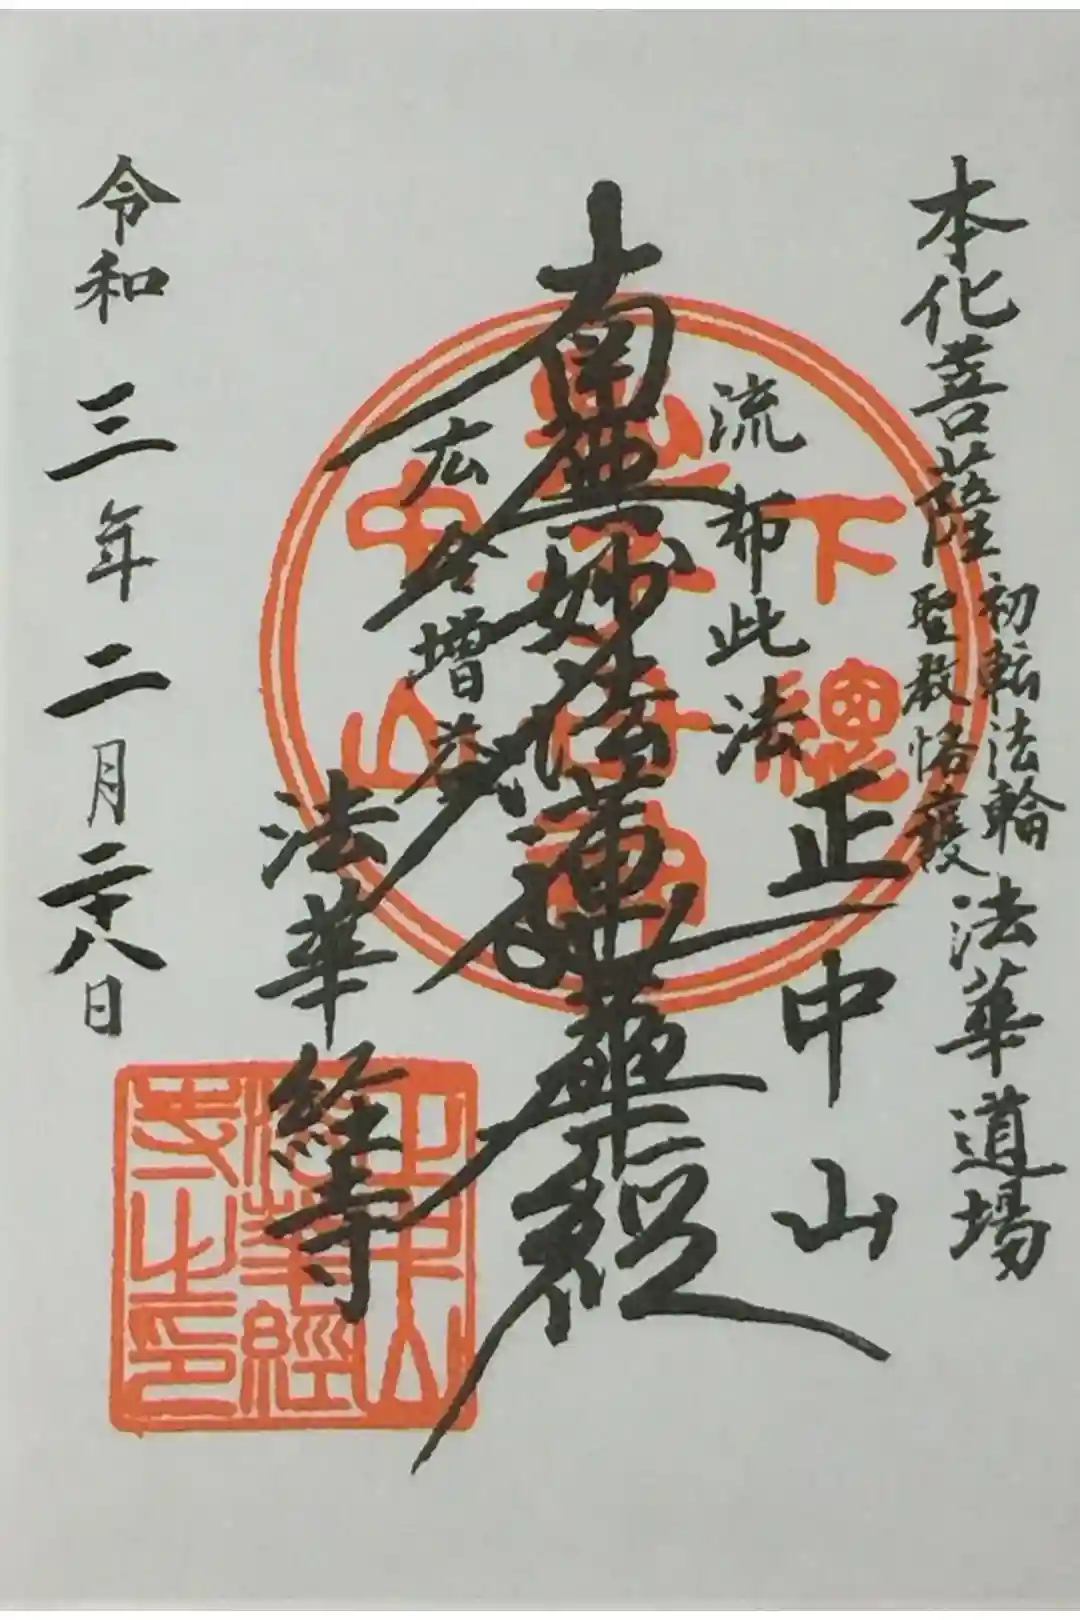 本化菩薩
初転法輪
聖教恪護
法華道場
正中山
流布此法
南無妙法蓮華経
広令増益
法華経寺
令和三年二月二十八日
下總
中山
正中山
法華經
寺之印